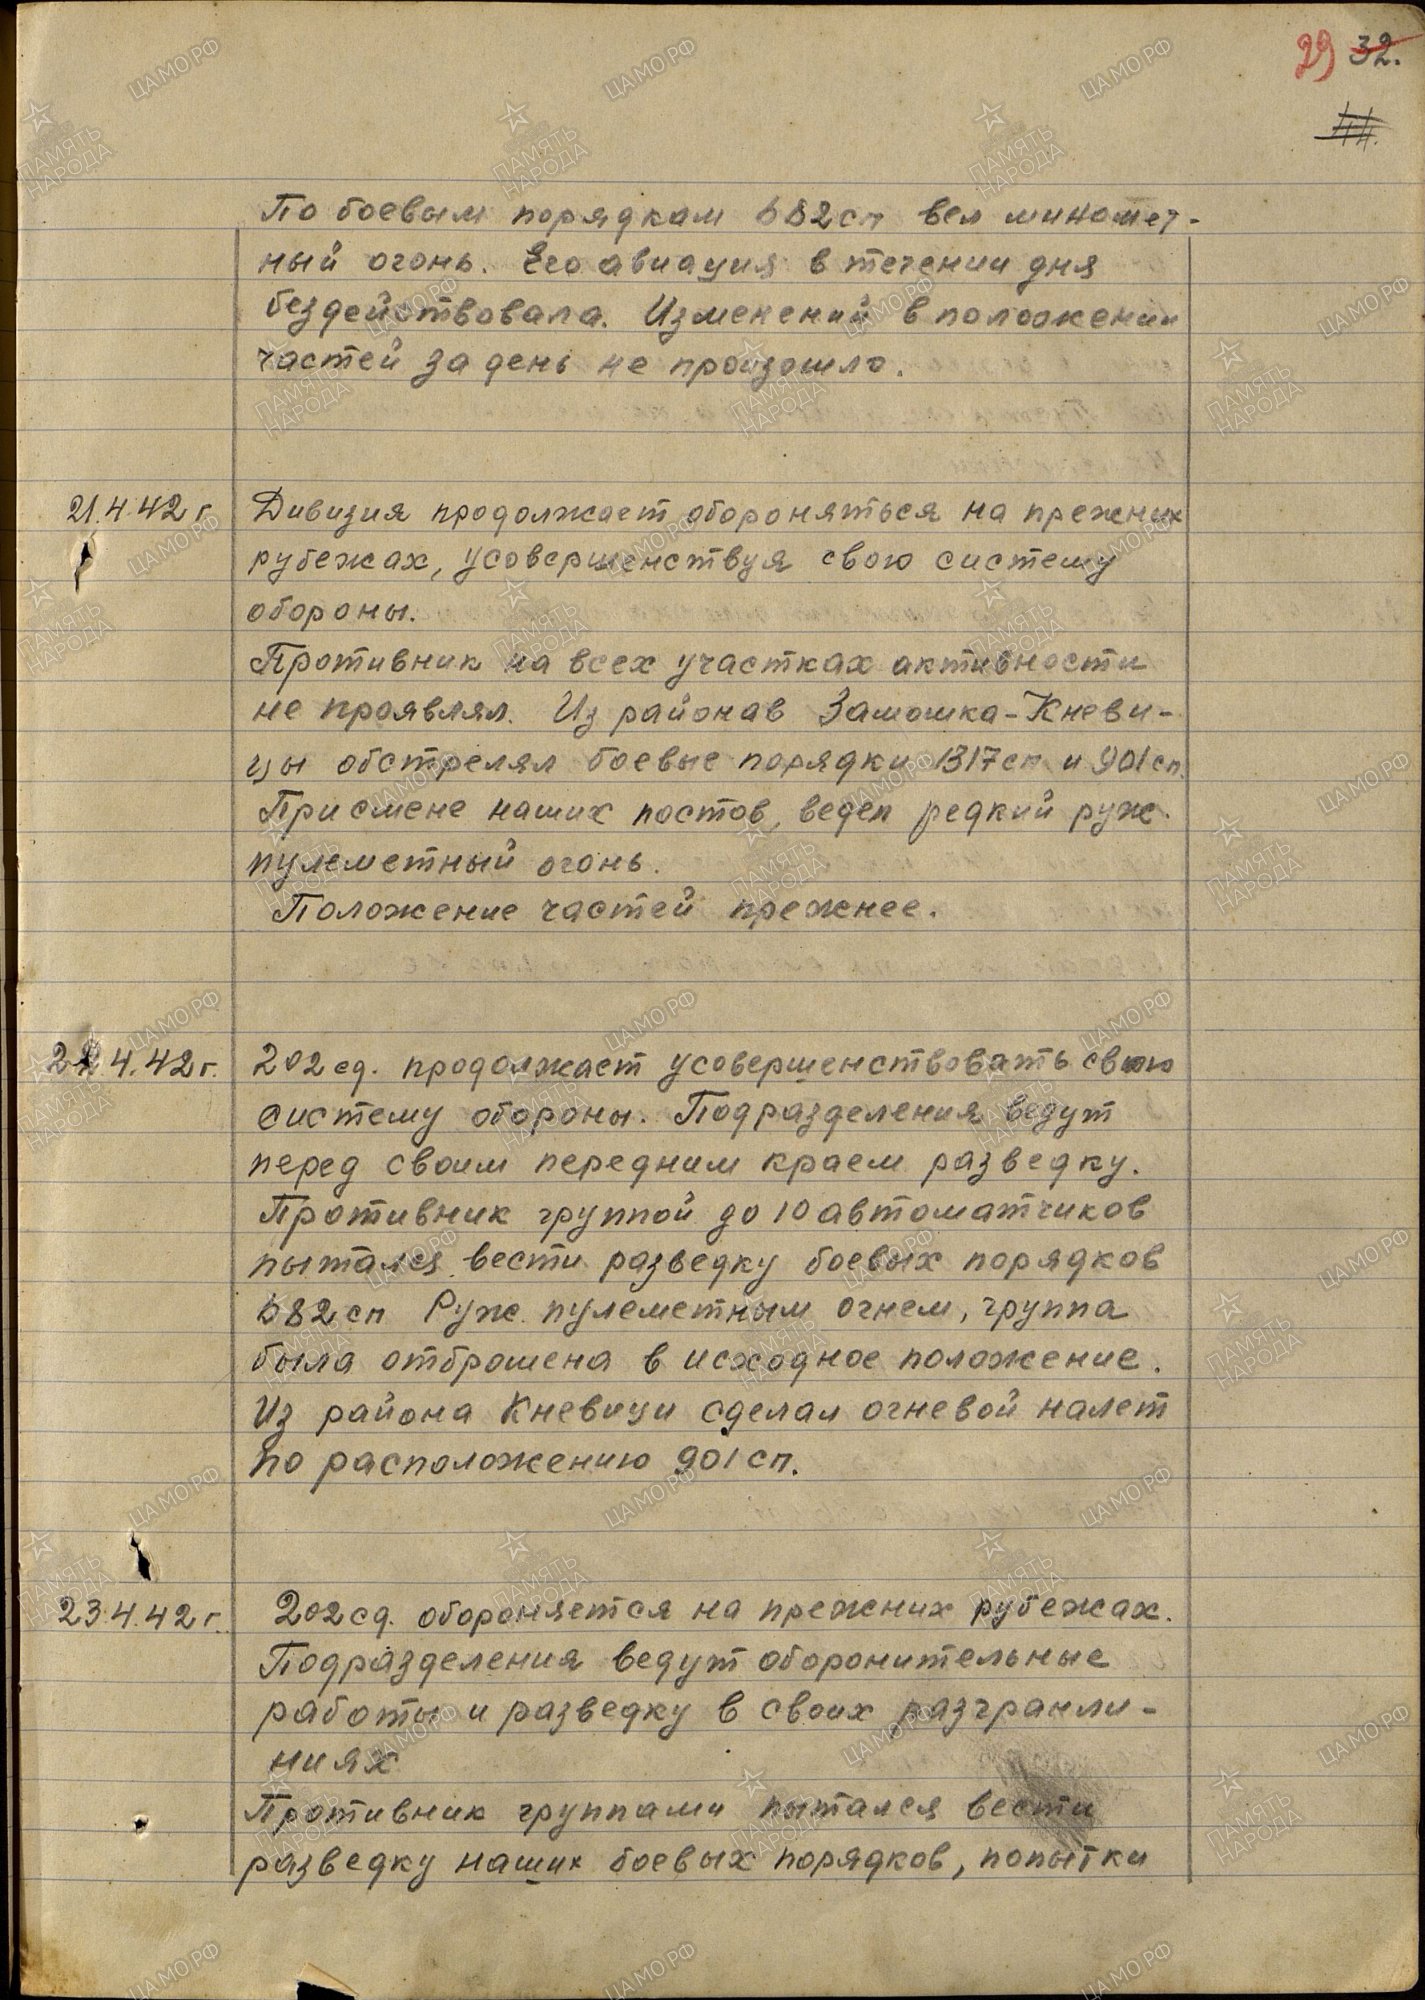 29 32.
44.
По боевым порядкам 682сп вел миномет-
ный огонь. Его авиация в течении дня
бездействовала. Изменений в положении
частей за день не произошло.
21.4.42г. Дивизия продолжает обороняться на прежних
рубежах, усовершенствуя свою систему
обороны.
Противник на всех участках активности
не проявлял. Из районав Замошка-Кневи-
цы обстрелял боевые порядки 1317сп и 901сп.
При смене наших постов, ведет редкий руж.
пулеметный огонь.
Положение частей прежнее.
22.4.42г. 202сд. продолжает усовершенствовать свою
систему обороны. Подразделения ведут
перед своим передним краем разведку.
Противник группой до 10 автоматчиков
пытался вести разведку боевых порядков
682сп Руж. пулеметным огнем, группа
была отброшена в исходное положение.
Из района Кневицы сделал огневой налет
по расположению 901сп.
23.4.42г. 202сд. обороняется на прежних рубежах.
Подразделения ведут оборонительные
работы и разведку в своих разгранли-
ниях
Противник группами пытался вести
разведку наших боевых порядков, попытки